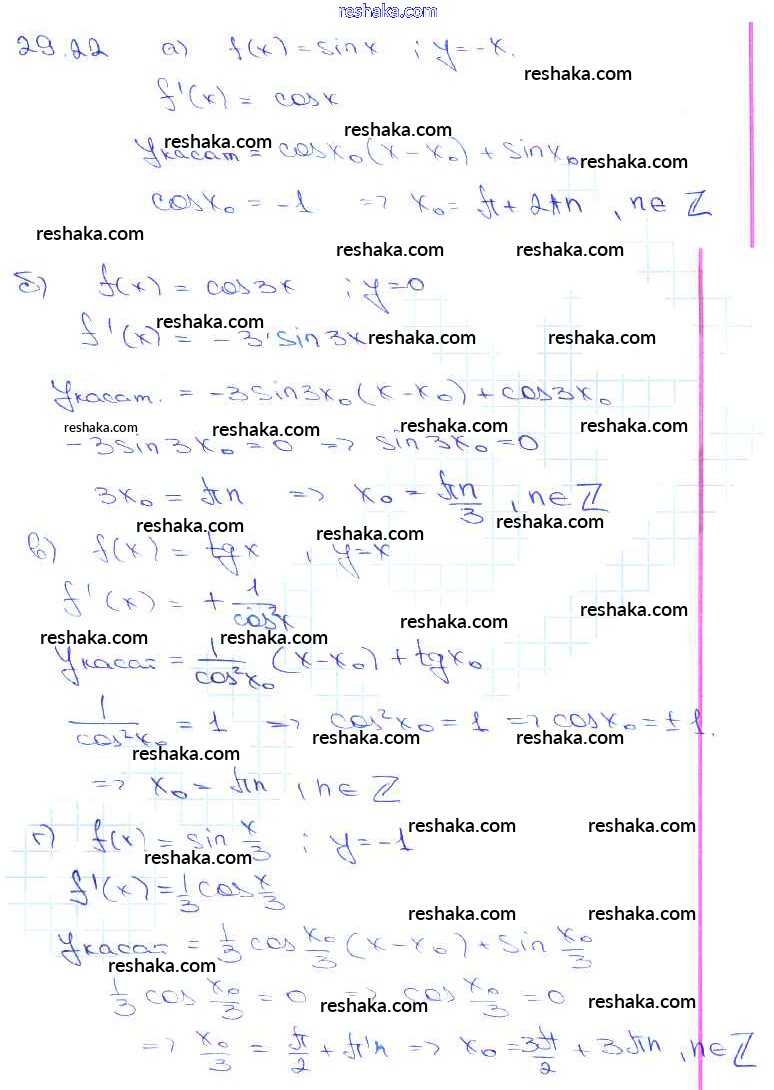 reshaka.com
29.22 а) f(x) = sin x ; y = -x.
reshaka.com
f'(x) = cos x
reshaka.com
reshaka.com
Yкасат = cos x₀ (x - x₀) + sin x₀
reshaka.com
cos x₀ = -1 => x₀ = π + 2πn , n ∈ ℤ
reshaka.com
reshaka.com reshaka.com
б) f(x) = cos 3x ; y = 0
reshaka.com
f'(x) = -3·sin 3x
reshaka.com reshaka.com
Yкасат. = -3 sin 3x₀ (x - x₀) + cos 3x₀
reshaka.com reshaka.com reshaka.com reshaka.com
-3 sin 3x₀ = 0 => sin 3x₀ = 0
3x₀ = πn => x₀ = πn/3 , n ∈ ℤ
reshaka.com reshaka.com reshaka.com
в) f(x) = tg x , y = x
f'(x) = + 1/cos²x
reshaka.com
reshaka.com reshaka.com reshaka.com
Yкасат = 1/cos²x₀ (x - x₀) + tg x₀
1/cos²x₀ = 1 => cos²x₀ = 1 => cos x₀ = ± 1.
reshaka.com reshaka.com reshaka.com
=> x₀ = πn , n ∈ ℤ
reshaka.com reshaka.com
г) f(x) = sin x/3 ; y = -1
reshaka.com
f'(x) = 1/3 cos x/3
reshaka.com reshaka.com
Yкасат = 1/3 cos x₀/3 (x - x₀) + sin x₀/3
reshaka.com
1/3 cos x₀/3 = 0 => cos x₀/3 = 0
reshaka.com reshaka.com
=> x₀/3 = π/2 + πn => x₀ = 3π/2 + 3πn , n ∈ ℤ